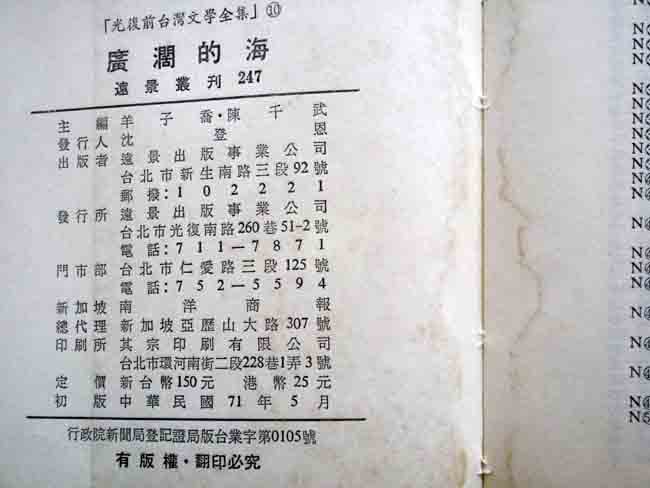 「光復前台灣文學全集」⑩
廣濶的海
遠景叢刊 247
主編 羊子喬・陳千武
發行人 沈登恩
出版者 遠景出版事業公司
台北市新生南路三段92號
郵撥：102221
發行所 遠景出版事業公司
台北市光復南路260巷51-2號
電話：711-7871
門市部 台北市仁愛路三段125號
電話：752-5594
新加坡 南洋商報
總代理 新加坡亞歷山大路307號
印刷所 其宗印刷有限公司
台北市環河南街二段228巷1弄3號
定價 新台幣150元 港幣25元
初版 中華民國71年5月
行政院新聞局登記證局版台業字第0105號
有版權・翻印必究